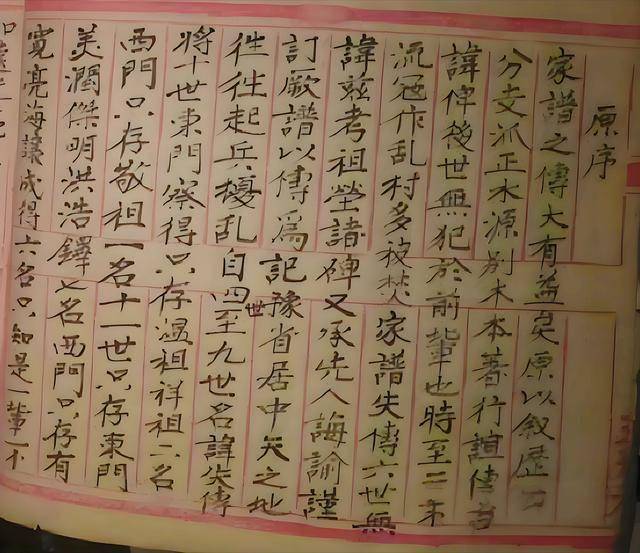 原序
家譜之傳大有益矣原以叙歷
分支派正水源别木本著行誼傳
諱俾後世無犯於前輩也時至末
流寇作乱村多被焚家譜失傳六世無
諱兹考祖塋諸碑又承先人誨諭謹
訂厥譜以傳為記豫省居中矢之地
徃徃起兵擾乱自四世至九世名諱失傳
將十世東門察得只存温祖祥祖二名
西門只存敬祖一名十一世只存東門
美潤傑明洪浩鐸七名西門只存有
寛亮海議成得六名只知是一輩不